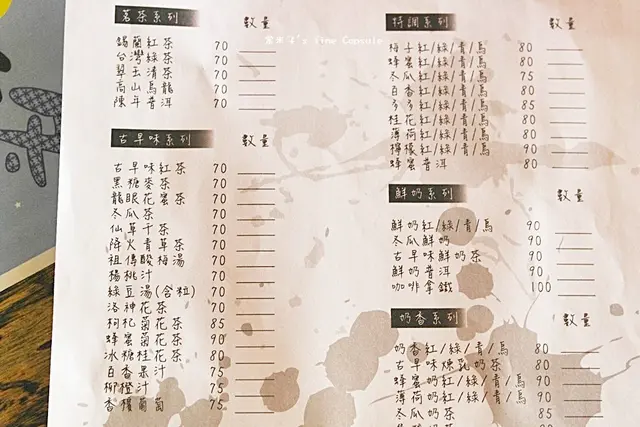 茗茶系列 數量
錫蘭紅茶 70
台灣綠茶 70
翠玉清茶 70
高山烏龍 70
陳年普洱 70
古早味系列 數量
古早味紅茶 70
黑糖麥茶 70
龍眼花蜜茶 70
冬瓜茶 70
仙草干茶 70
降火青草茶 70
祖傳酸梅湯 70
楊桃汁 70
綠豆湯(含粒) 70
洛神花茶 70
枸杞菊花茶 85
蜂蜜菊花茶 90
冰糖桂花茶 80
百香果汁 75
柳橙汁 75
香櫃葡萄 75
特調系列 數量
梅子紅/綠/青/烏 80
蜂蜜紅/綠/青/烏 80
冬瓜紅/綠/青/烏 75
百香紅/綠/青/烏 80
多多紅/綠/青/烏 85
桂花紅/綠/青/烏 80
薄荷紅/綠/青/烏 80
檸檬紅/綠/青/烏 90
蜂蜜普洱 80
鮮奶系列 數量
鮮奶紅/綠/青/烏 90
冬瓜鮮奶 90
古早味鮮奶茶 90
鮮奶普洱 90
咖啡拿鐵 100
奶香系列 數量
奶香紅/綠/青/烏 80
古早味煉乳奶茶 80
蜂蜜奶紅/綠/青/烏 90
薄荷奶紅/綠/青/烏 90
冬瓜奶茶 85
's Time Capsule